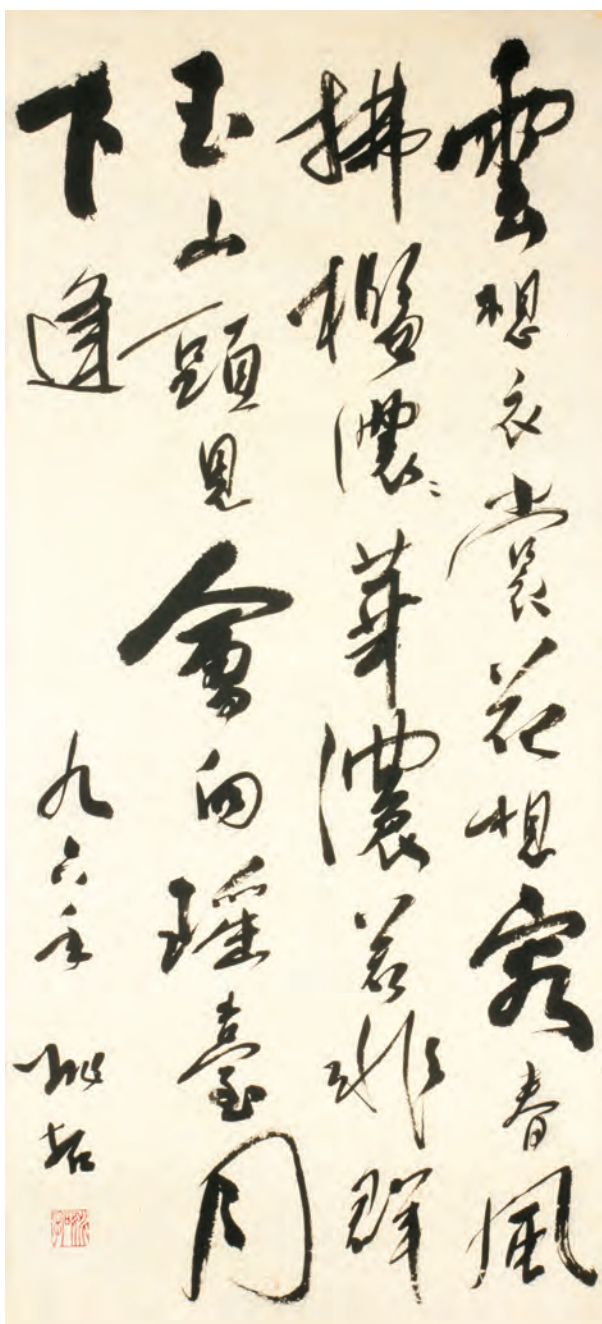 雲想衣裳花想容春風
拂檻濃華濃若非群
玉山頭見會向瑤臺月
下逢
九六年 姚拓